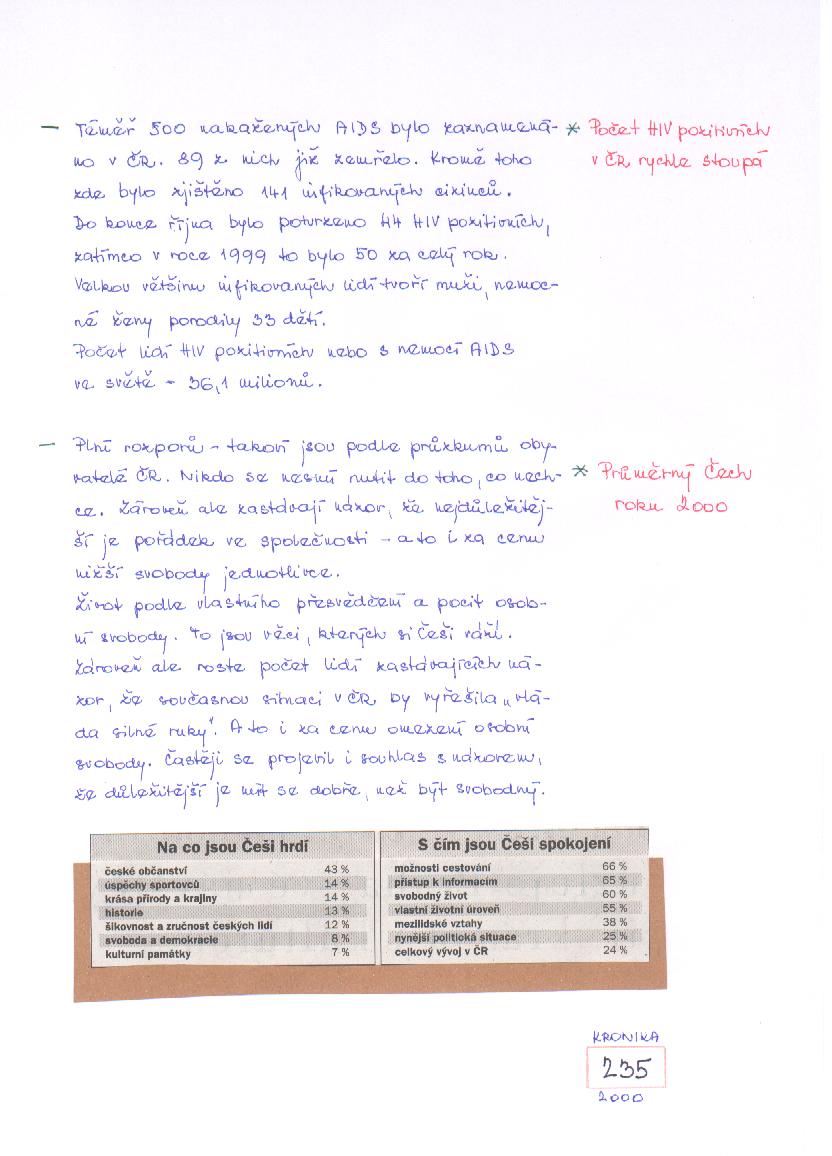 – Téměř 500 nakažených AIDS bylo zaznamená-
no v ČR. 89 z nich již zemřelo. Kromě toho
zde bylo zjištěno 141 infikovaných cizinců.
Do konce října bylo potvrzeno 44 HIV pozitivních,
zatímco v roce 1999 to bylo 50 za celý rok.
Velkou většinu infikovaných lidí tvoří muži, nemoc-
né ženy porodily 33 dětí.
Počet lidí HIV pozitivních nebo s nemocí AIDS
ve světě – 36,1 milionů.
* Počet HIV pozitivních
v ČR rychle stoupá
– Plní rozporů – takoví jsou podle průzkumů oby-
vatelé ČR. Nikdo se nesmí nutit do toho, co nech-
ce. Zároveň ale zastávají názor, že nejdůležitěj-
ší je pořádek ve společnosti – a to i za cenu
nižší svobody jednotlivce.
Život podle vlastního přesvědčení a pocit osob-
ní svobody. To jsou věci, kterých si Češi váží.
Zároveň ale roste počet lidí zastávajících ná-
zor, že současnou situaci v ČR by vyřešila „vlá-
da silné ruky". A to i za cenu omezení osobní
svobody. Častěji se projevil i souhlas s názorem,
že důležitější je mít se dobře, než být svobodný.
* Průměrný Čech
roku 2000
Na co jsou Češi hrdí
české občanství 43 %
úspěchy sportovců 14 %
krása přírody a krajiny 14 %
historie 13 %
šikovnost a zručnost českých lidí 12 %
svoboda a demokracie 8 %
kulturní památky 7 %
S čím jsou Češi spokojení
možnosti cestování 66 %
přístup k informacím 65 %
svobodný život 60 %
vlastní životní úroveň 55 %
mezilidské vztahy 38 %
nynější politická situace 25 %
celkový vývoj v ČR 24 %
KRONIKA
235
2000